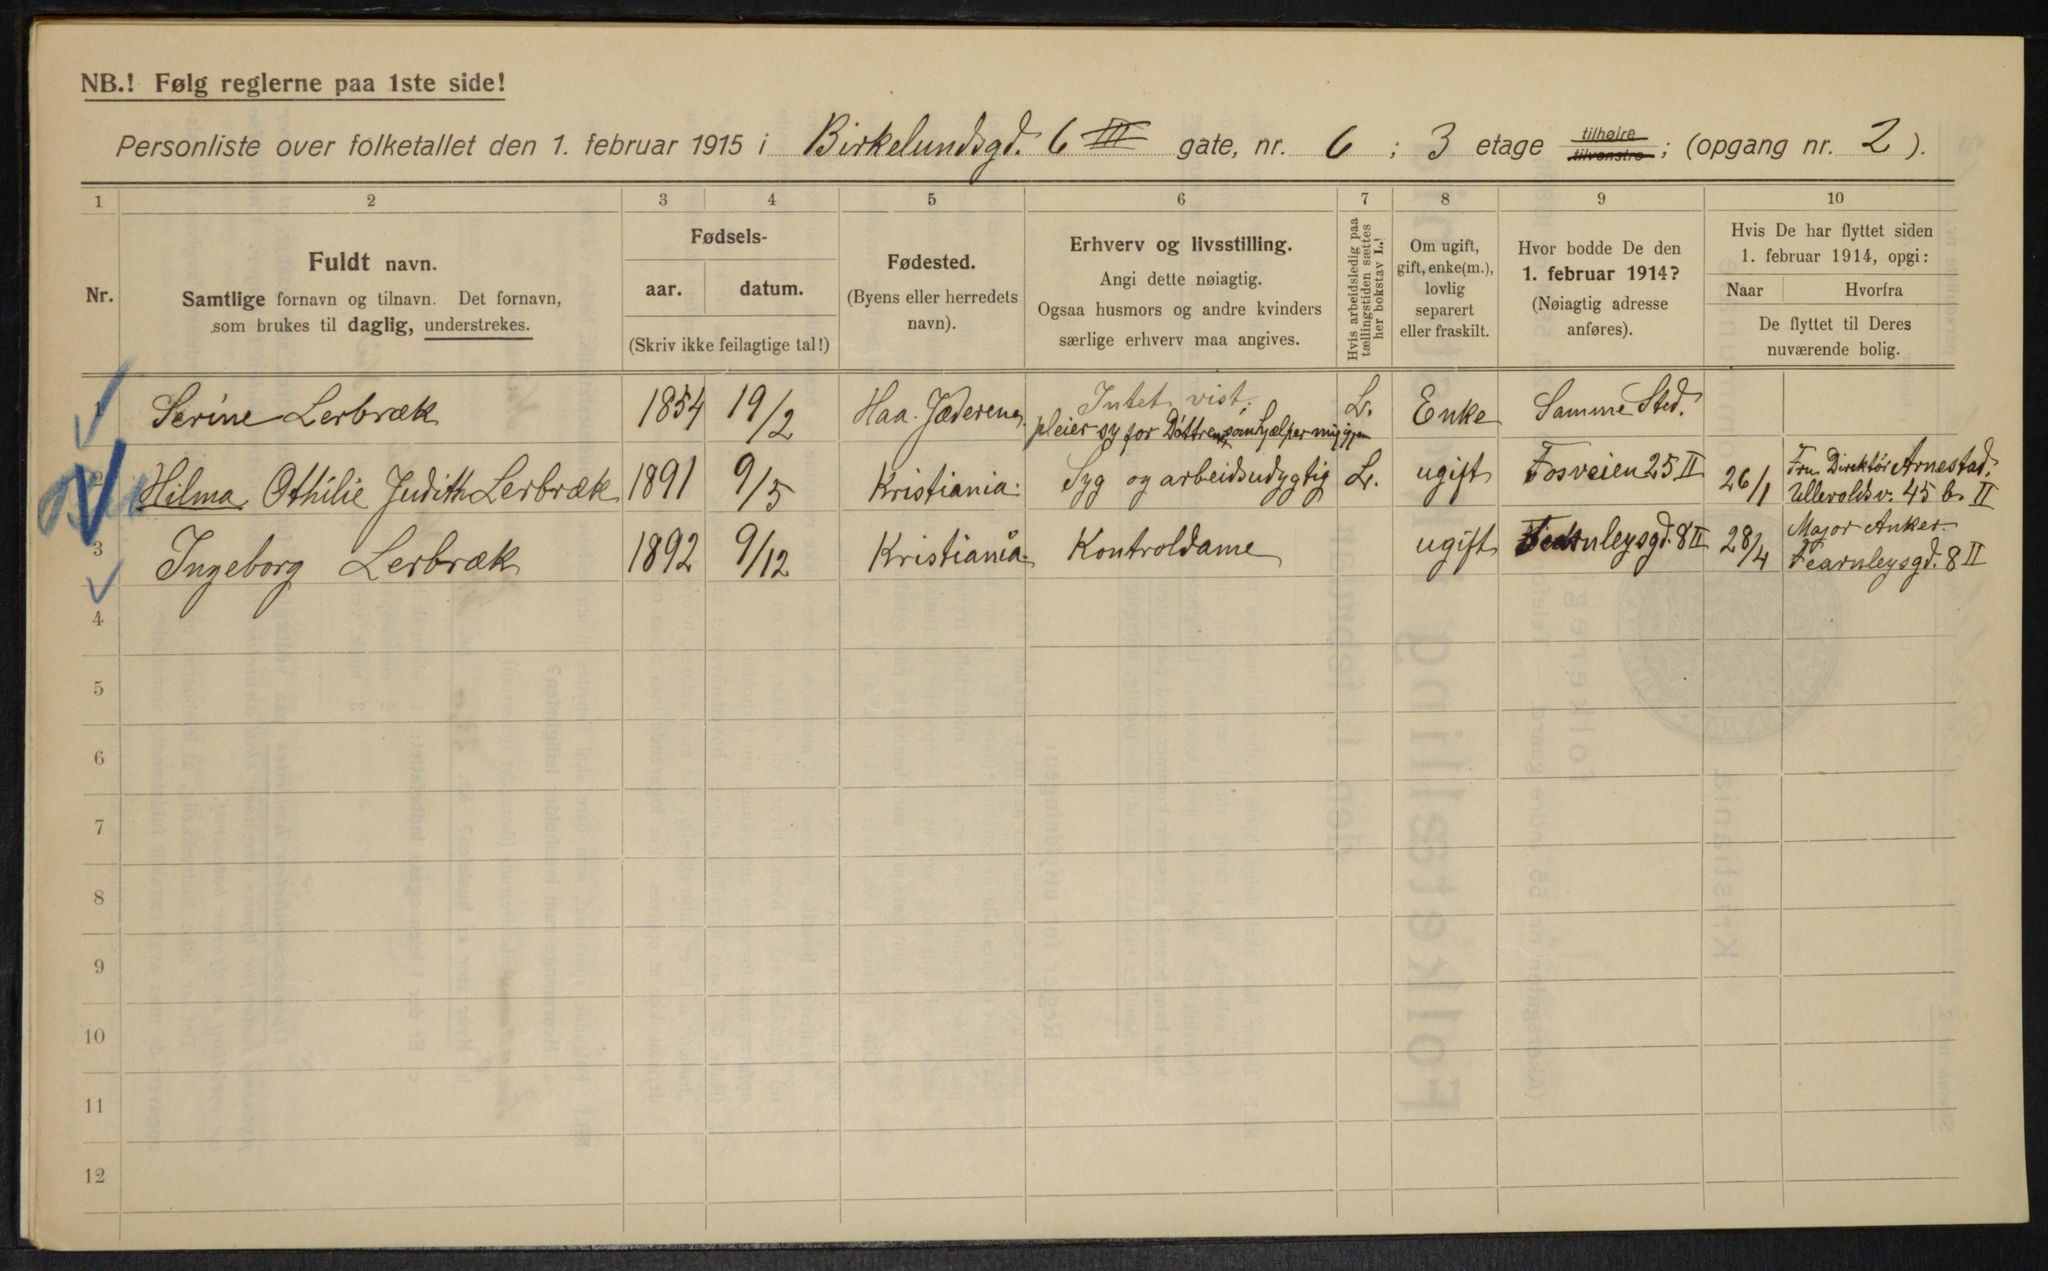 NB.! Følg reglerne paa 1ste side!
Personliste over folketallet den 1. februar 1915 i Birkelundsgd. 6 III gate, nr. 6 ; 3 etage tilhøire tilvenstre ; (opgang nr. 2 ).
1 2 3 4 5 6 7 8 9 10
Nr.
Fuldt navn.
Samtlige fornavn og tilnavn. Det fornavn,
som brukes til daglig, understrekes.
Fødsels-
aar. datum.
(Skriv ikke feilagtige tal!)
Fødested.
(Byens eller herredets
navn).
Erhverv og livsstilling.
Angi dette nøiagtig.
Ogsaa husmors og andre kvinders
særlige erhverv maa angives.
Hvis arbeidsledig paa
tællingstiden sættes
her bokstav L.!
Om ugift,
gift, enke(m.),
lovlig
separert
eller fraskilt.
Hvor bodde De den
1. februar 1914?
(Nøiagtig adresse
anføres).
Hvis De har flyttet siden
1. februar 1914, opgi:
Naar Hvorfra
De flyttet til Deres
nuværende bolig.
1 Serine Lerbræk 1854 19/2 Haa. Jæderen Intet vist; L. Enke Samme Sted.
pleier sy for Døttren, som hjælper mig igjen
2 Hilma Othilie Judith Lerbræk 1891 9/5 Kristiania. Syg og arbeidsudygtig L. ugift Fosveien 25 II 26/1 Fru Direktør Arnestad.
Ullevoldsv. 45 b. II
3 Ingeborg Lerbræk 1892 9/12 Kristiania. Kontroldame ugift Fearnleysgd. 8 II 28/4 Major Anker.
Fearnleysgd. 8 II
4
5
6
7
8
9
10
11
12